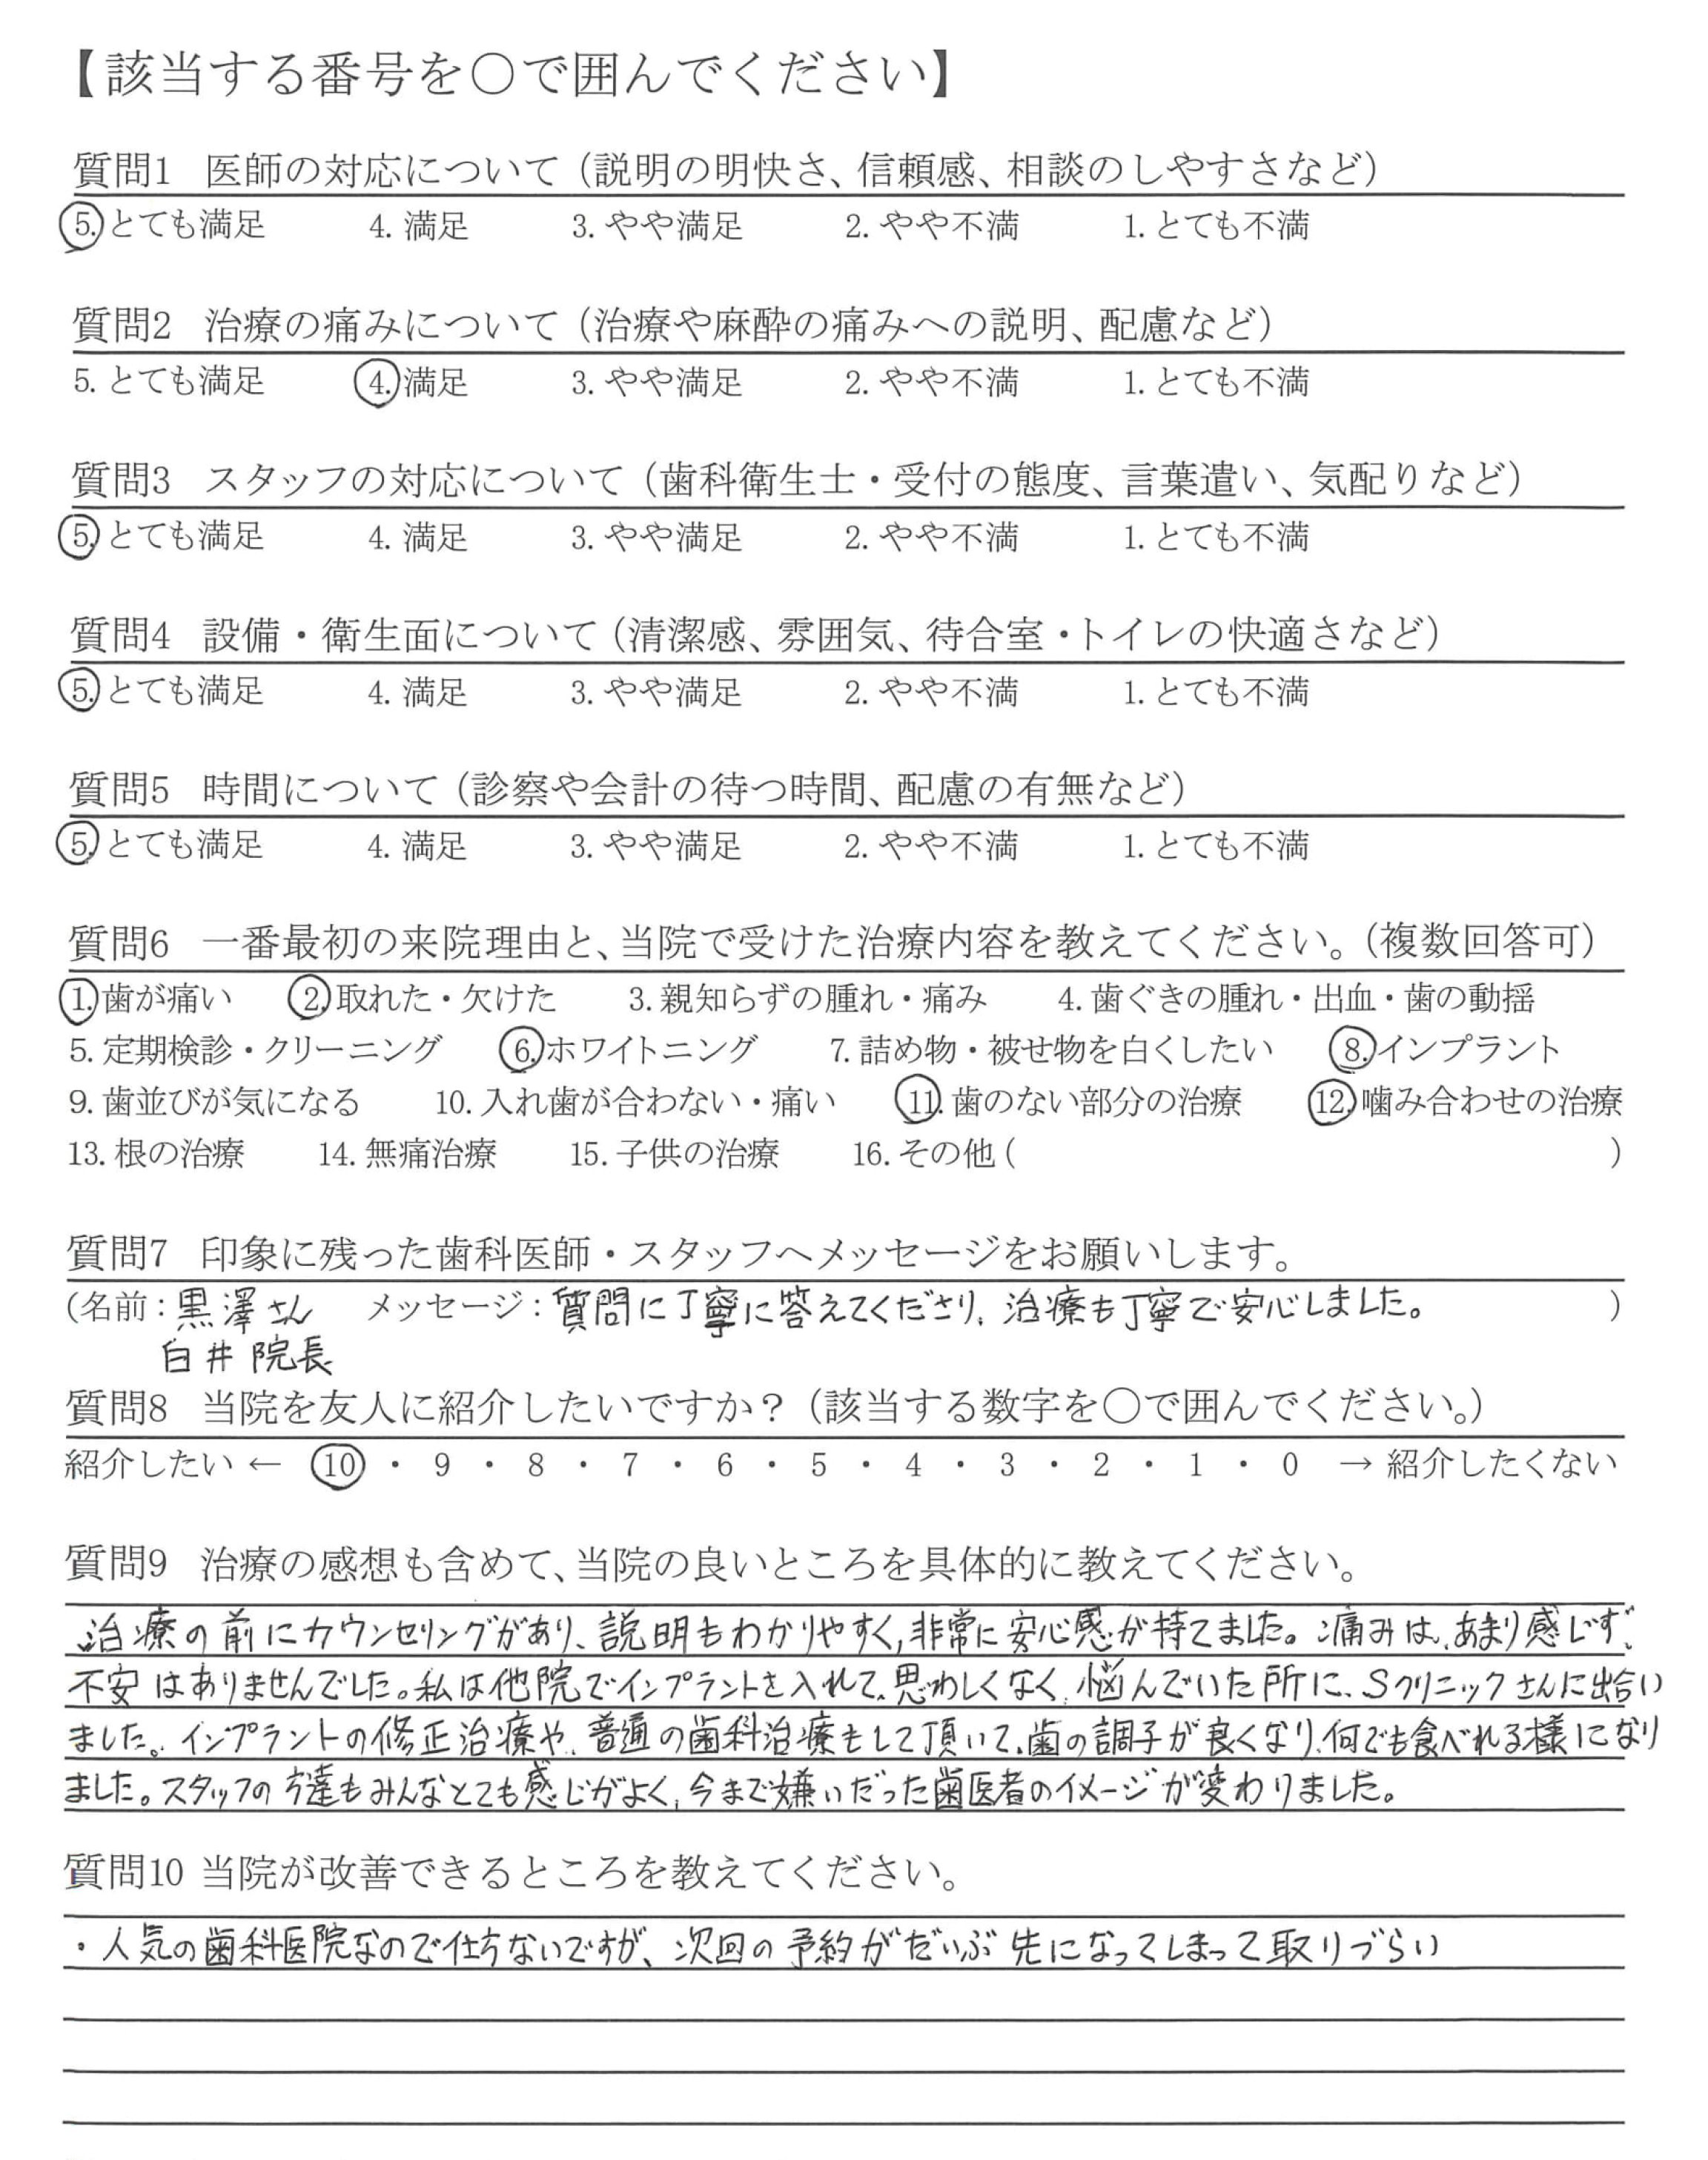 【該当する番号を〇で囲んでください】
質問1 医師の対応について（説明の明快さ、信頼感、相談のしやすさなど）
5. とても満足 4. 満足 3. やや満足 2. やや不満 1. とても不満
質問2 治療の痛みについて（治療や麻酔の痛みへの説明、配慮など）
5. とても満足 4. 満足 3. やや満足 2. やや不満 1. とても不満
質問3 スタッフの対応について（歯科衛生士・受付の態度、言葉遣い、気配りなど）
5. とても満足 4. 満足 3. やや満足 2. やや不満 1. とても不満
質問4 設備・衛生面について（清潔感、雰囲気、待合室・トイレの快適さなど）
5. とても満足 4. 満足 3. やや満足 2. やや不満 1. とても不満
質問5 時間について（診察や会計の待つ時間、配慮の有無など）
5. とても満足 4. 満足 3. やや満足 2. やや不満 1. とても不満
質問6 一番最初の来院理由と、当院で受けた治療内容を教えてください。（複数回答可）
1. 歯が痛い 2. 取れた・欠けた 3. 親知らずの腫れ・痛み 4. 歯ぐきの腫れ・出血・歯の動揺
5. 定期検診・クリーニング 6. ホワイトニング 7. 詰め物・被せ物を白くしたい 8. インプラント
9. 歯並びが気になる 10. 入れ歯が合わない・痛い 11. 歯のない部分の治療 12. 噛み合わせの治療
13. 根の治療 14. 無痛治療 15. 子供の治療 16. その他 ( )
質問7 印象に残った歯科医師・スタッフへメッセージをお願いします。
（名前：黒澤さん メッセージ：質問に丁寧に答えてくださり、治療も丁寧で安心しました。）
白井院長
質問8 当院を友人に紹介したいですか？（該当する数字を〇で囲んでください。）
紹介したい ← 10 ・ 9 ・ 8 ・ 7 ・ 6 ・ 5 ・ 4 ・ 3 ・ 2 ・ 1 ・ 0 → 紹介したくない
質問9 治療の感想も含めて、当院の良いところを具体的に教えてください。
治療の前にカウンセリングがあり、説明もわかりやすく、非常に安心感が持てました。痛みは、あまり感じず、
不安はありませんでした。私は他院でインプラントを入れて、思わしくなく、悩んでいた所に、Sクリニックさんに出合い
ました。インプラントの修正治療や、普通の歯科治療もして頂いて、歯の調子が良くなり、何でも食べれる様になり
ました。スタッフの方達もみんなとても感じがよく、今まで嫌いだった歯医者のイメージが変わりました。
質問10 当院が改善できるところを教えてください。
・人気の歯科医院なので仕方ないですが、次回の予約がだいぶ先になってしまって取りづらい